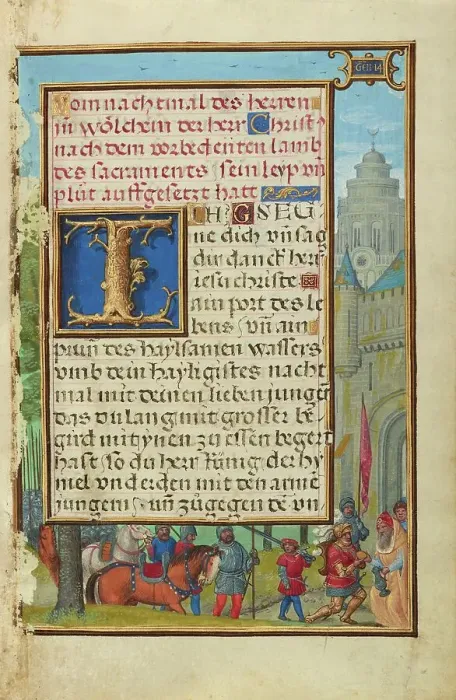 GEN 14
Vom nachtmal des herren
jn wölchem der herr Christ⁹
nach dem vorbedeuten lamb
des sacraments sein leyp vn̄
plůt auffgesetzt hatt
ICH GSEG
ne dich vn̄ sag
dir danck herr
iesu christe
ain port des le
bens vn̄ ain
prun des haylsamen wassers
vmb dein hayligistes nacht
mal mit deinen lieben jungern
das du lang mit grosser be
gird mit ynen zu essen begert
hast so du herr künig der hy
mel vnd erden mit den arme
jungern vn̄ zůgegen de vn